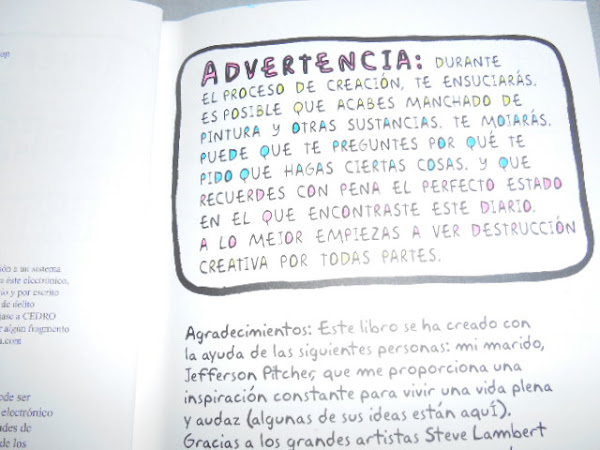 ión a un sistema
electrónico,
io y por escrito
de delito
a CEDRO
algún fragmento
a.com
ser
electrónico
de
de los
ADVERTENCIA: DURANTE
EL PROCESO DE CREACIÓN, TE ENSUCIARÁS.
ES POSIBLE QUE ACABES MANCHADO DE
PINTURA Y OTRAS SUSTANCIAS. TE MOJARÁS.
PUEDE QUE TE PREGUNTES POR QUÉ TE
PIDO QUE HAGAS CIERTAS COSAS. Y QUE
RECUERDES CON PENA EL PERFECTO ESTADO
EN EL QUE ENCONTRASTE ESTE DIARIO.
A LO MEJOR EMPIEZAS A VER DESTRUCCIÓN
CREATIVA POR TODAS PARTES.
Agradecimientos: Este libro se ha creado con
la ayuda de las siguientes personas: mi marido,
Jefferson Pitcher, que me proporciona una
inspiración constante para vivir una vida plena
y audaz (algunas de sus ideas están aquÍ).
Gracias a los grandes artistas Steve Lambert